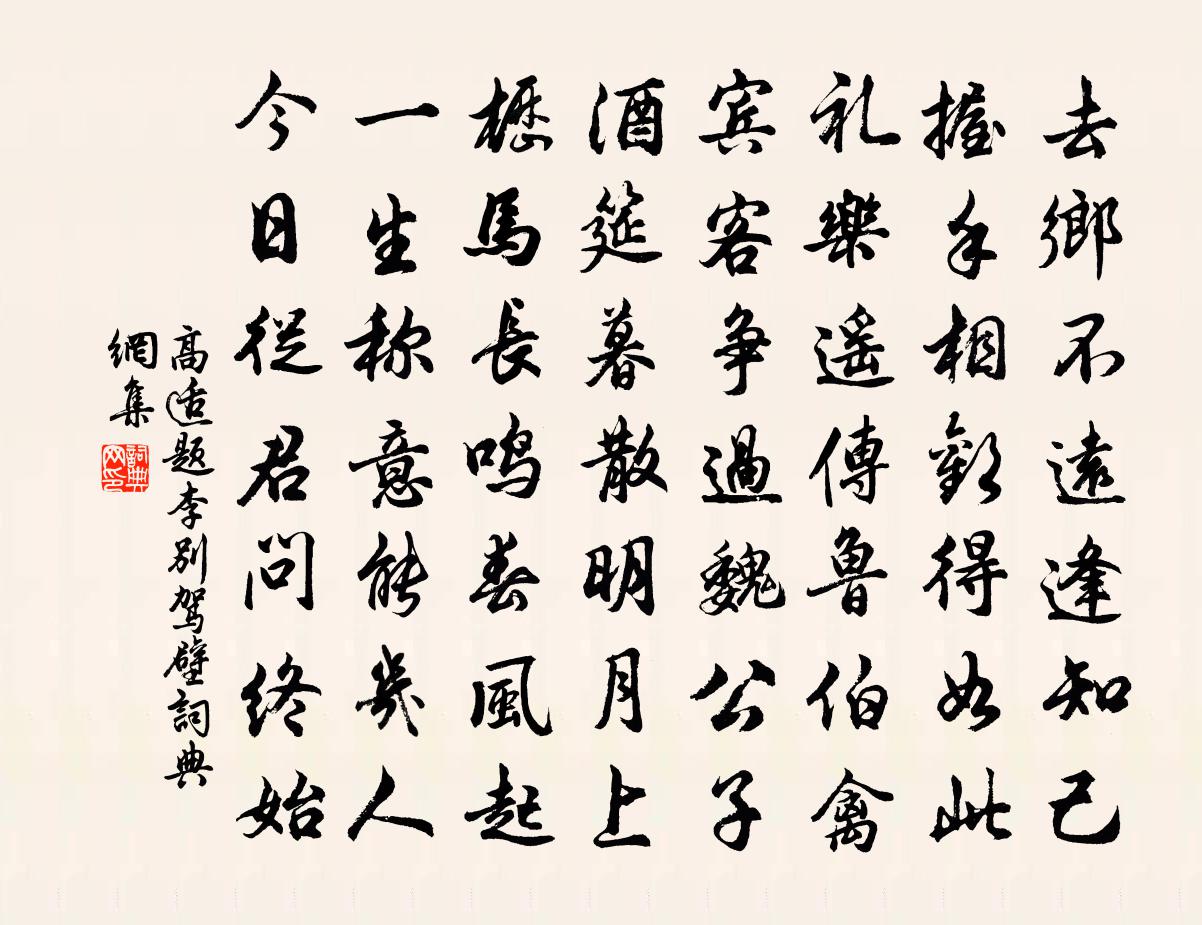 去鄉不遠逢知己
握手相歡得如此
礼樂遙傳魯伯禽
宾客爭過魏公子
酒筵暮散明月上
櫪馬長鳴春風起
一生称意能幾人
今日從君問終始
高适题李别駕壁詞典
網集
詞典
网印